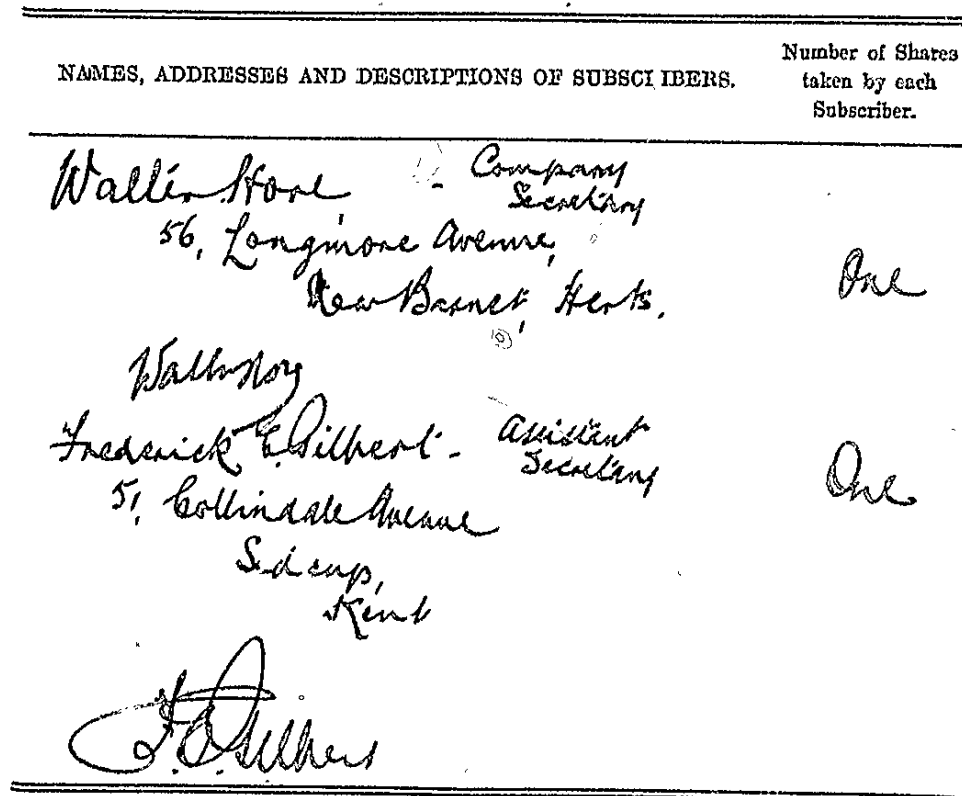 NAMES, ADDRESSES AND DESCRIPTIONS OF SUBSCRIBERS.
Number of Shares
taken by each
Subscriber.
Walter Hore - Company
Secretary
56, Longmore Avenue,
New Barnet, Herts.
One
Walter Hore
Frederick E. Gilbert - Assistant
Secretary
One
51, Collindale Avenue
Sidcup,
Kent
F. E. Gilbert